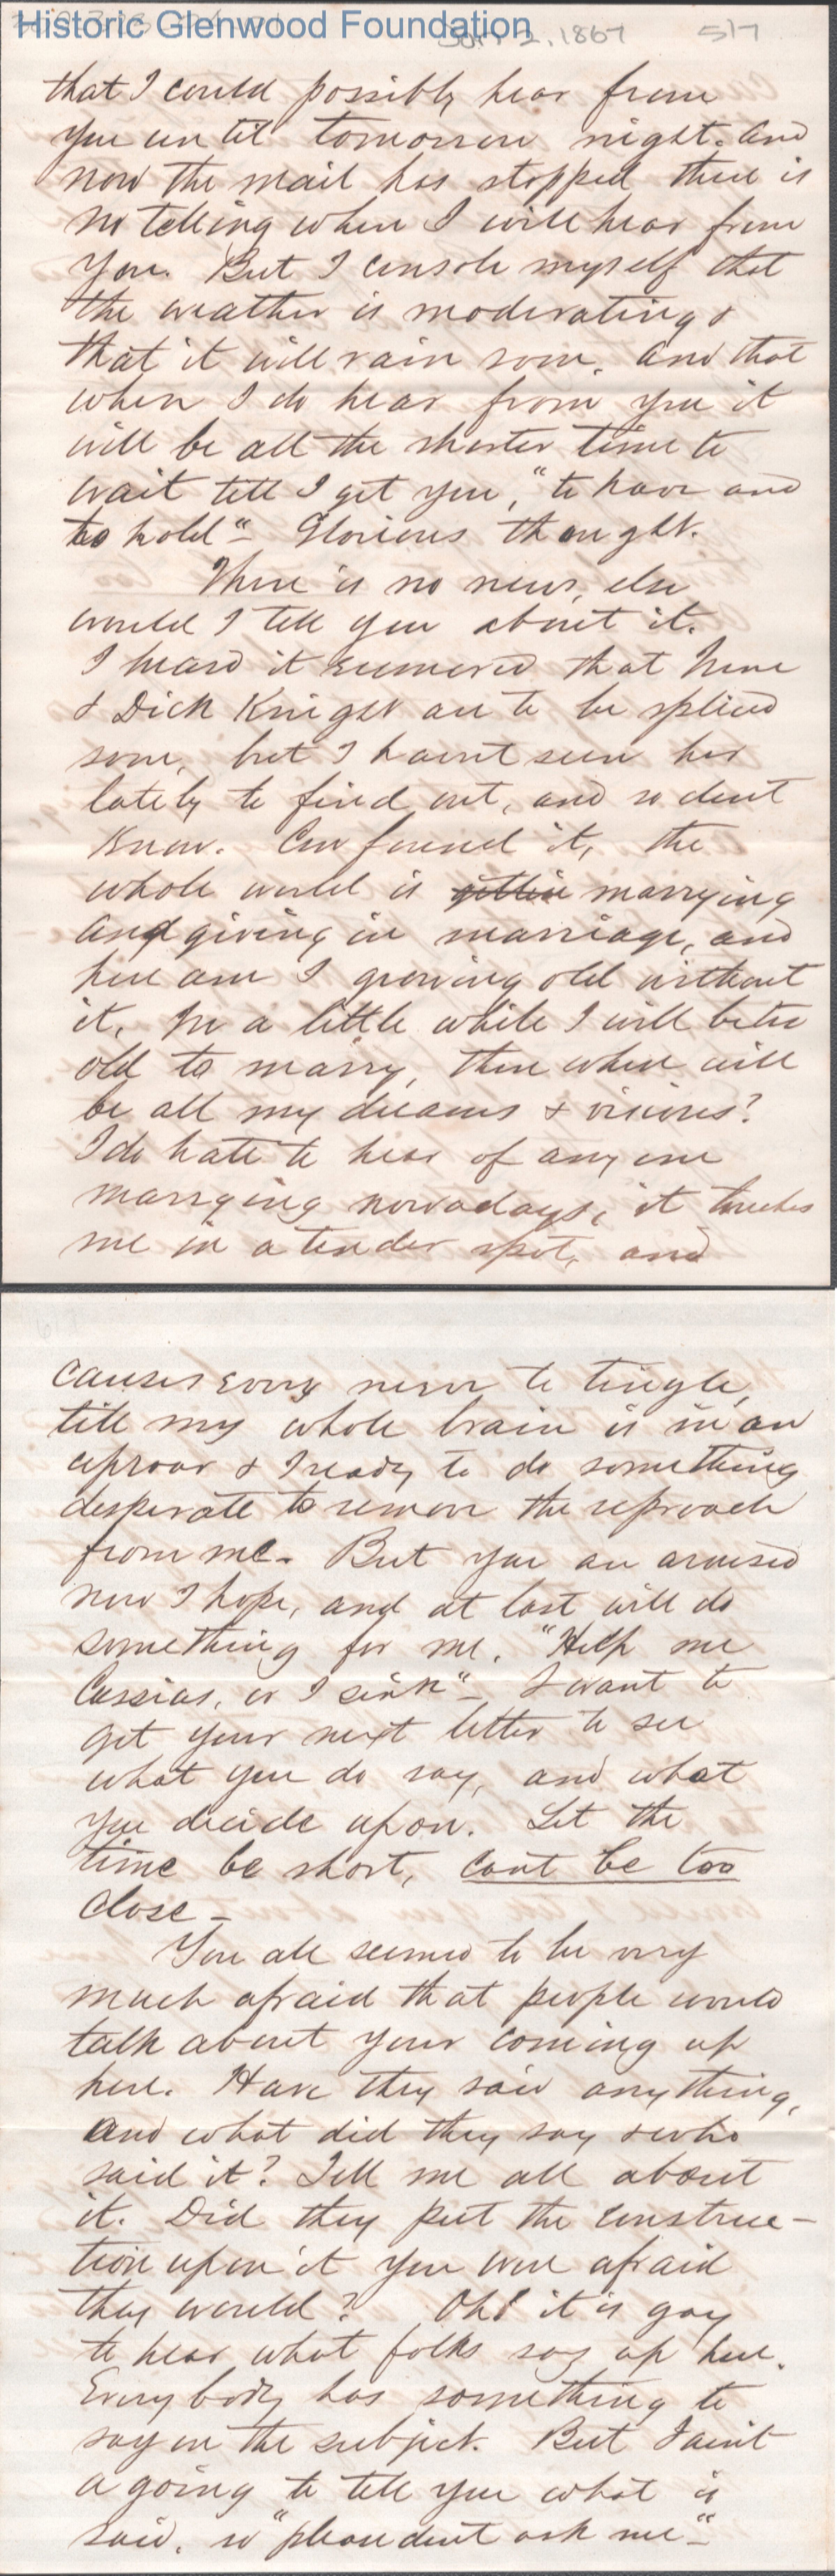 Historic Glenwood Foundation
2, 1867 517
that I could possibly hear from
you until tomorrow night. And
now the mail has stopped there is
no telling when I will hear from
you. But I console myself that
the weather is moderating &
that it will rain soon. And that
when I do hear from you it
will be all the shorter time to
wait till I get you, "to have and
to hold" - Glorious thought.
There is no news, else
would I tell you about it.
I heard it rumored that
& Dick Knight are to be spliced
soon, but I haint seen her
lately to find out, and so dont
know. Confound it, the
whole world is gittin marrying
and giving in marriage, and
here am I growing old without
it. In a little while I will be too
old to marry, then where will
be all my dreams & visions?
I do hate to hear of any one
marrying nowadays, it touches
me in a tender spot, and
causes every nerve to tingle,
till my whole brain is in an
uproar & I ready to do something
desperate to remove the reproach
from me. But you are aroused
now I hope, and at last will do
something for me. "Help me
Cassius, or I sink" - I want to
get your next letter to see
what you do say, and what
you decide upon. Let the
time be short, cant be too
close -
You all seemed to be very
much afraid that people would
talk about your coming up
here. Have they said anything,
and what did they say & who
said it? Tell me all about
it. Did they put the construc-
tion upon it you were afraid
they would? Oh! it is gay
to hear what folks say up here.
Every body has something to
say on the subject. But I aint
a going to tell you what is
said, so "please dont ask me" -